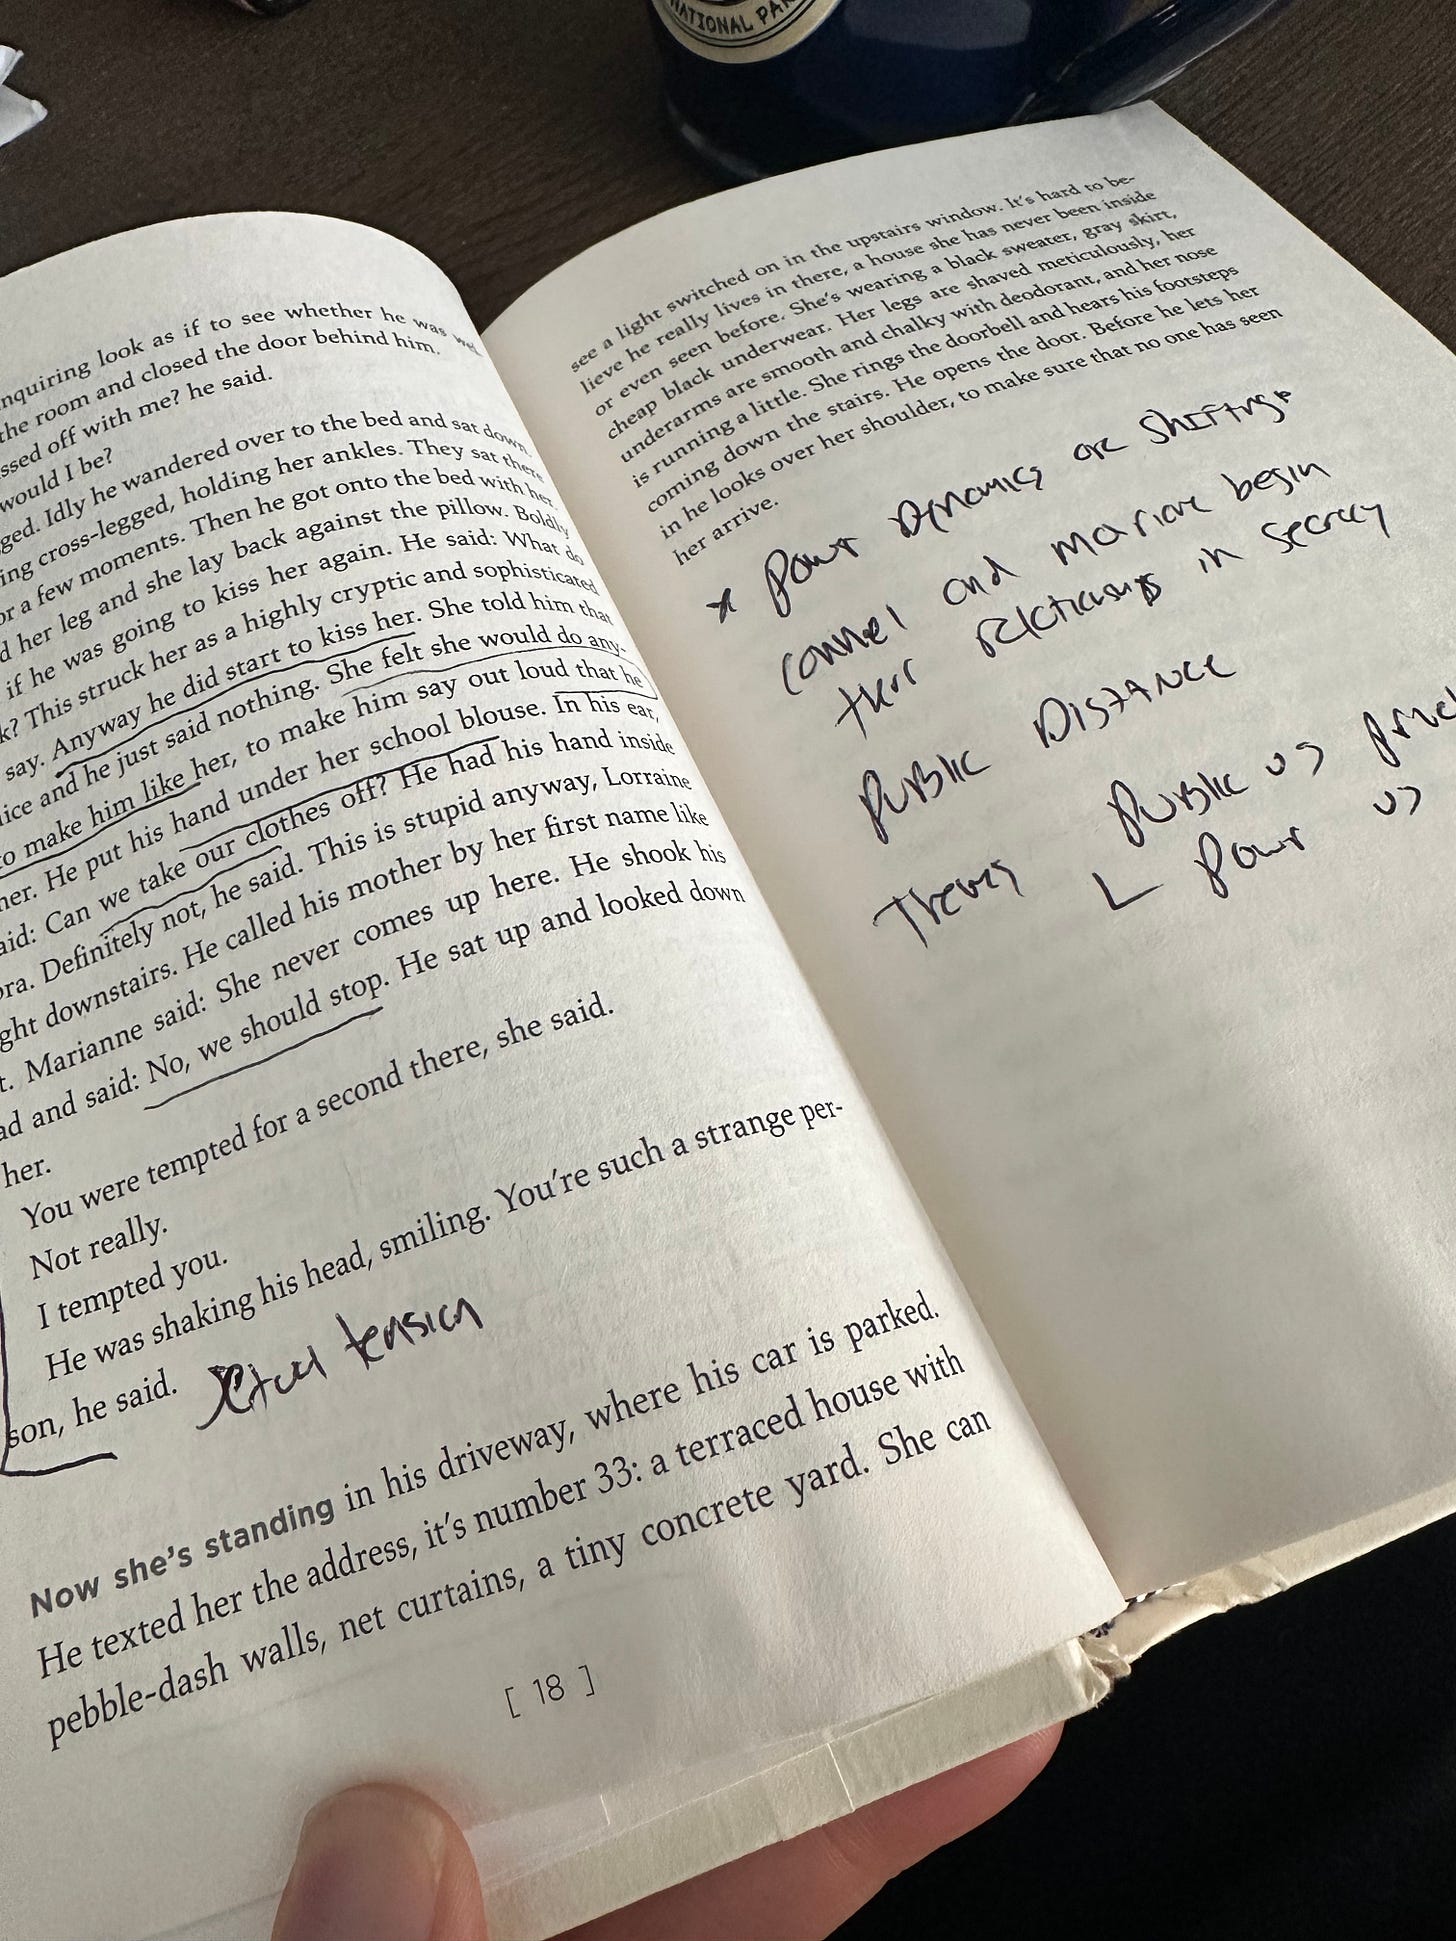 NATIONAL PAR
nquiring look as if to see whether he was
the room and closed the door behind him.
ssed off with me? he said.
would I be?
ged. Idly he wandered over to the bed and sat down.
ing cross-legged, holding her ankles. They sat there
or a few moments. Then he got onto the bed with her.
d her leg and she lay back against the pillow. Boldly
if he was going to kiss her again. He said: What do
k? This struck her as a highly cryptic and sophisticated
say. Anyway he did start to kiss her. She told him that
ice and he just said nothing. She felt she would do any-
to make him like her, to make him say out loud that he
her. He put his hand under her school blouse. In his ear,
aid: Can we take our clothes off? He had his hand inside
ora. Definitely not, he said. This is stupid anyway, Lorraine
ght downstairs. He called his mother by her first name like
t. Marianne said: She never comes up here. He shook his
ad and said: No, we should stop. He sat up and looked down
her.
You were tempted for a second there, she said.
Not really.
I tempted you.
He was shaking his head, smiling. You're such a strange per-
son, he said.
tension
Now she's standing in his driveway, where his car is parked.
He texted her the address, it's number 33: a terraced house with
pebble-dash walls, net curtains, a tiny concrete yard. She can
[ 18 ]
see a light switched on in the upstairs window. It's hard to be-
lieve he really lives in there, a house she has never been inside
or even seen before. She's wearing a black sweater, gray skirt,
cheap black underwear. Her legs are shaved meticulously, her
underarms are smooth and chalky with deodorant, and her nose
is running a little. She rings the doorbell and hears his footsteps
coming down the stairs. He opens the door. Before he lets her
in he looks over her shoulder, to make sure that no one has seen
her arrive.
* Power Dynamics are shifting.
Connel and Marianne begin
their relationship in secrecy
Public Distance
Themes Public vs Privat
Power vs